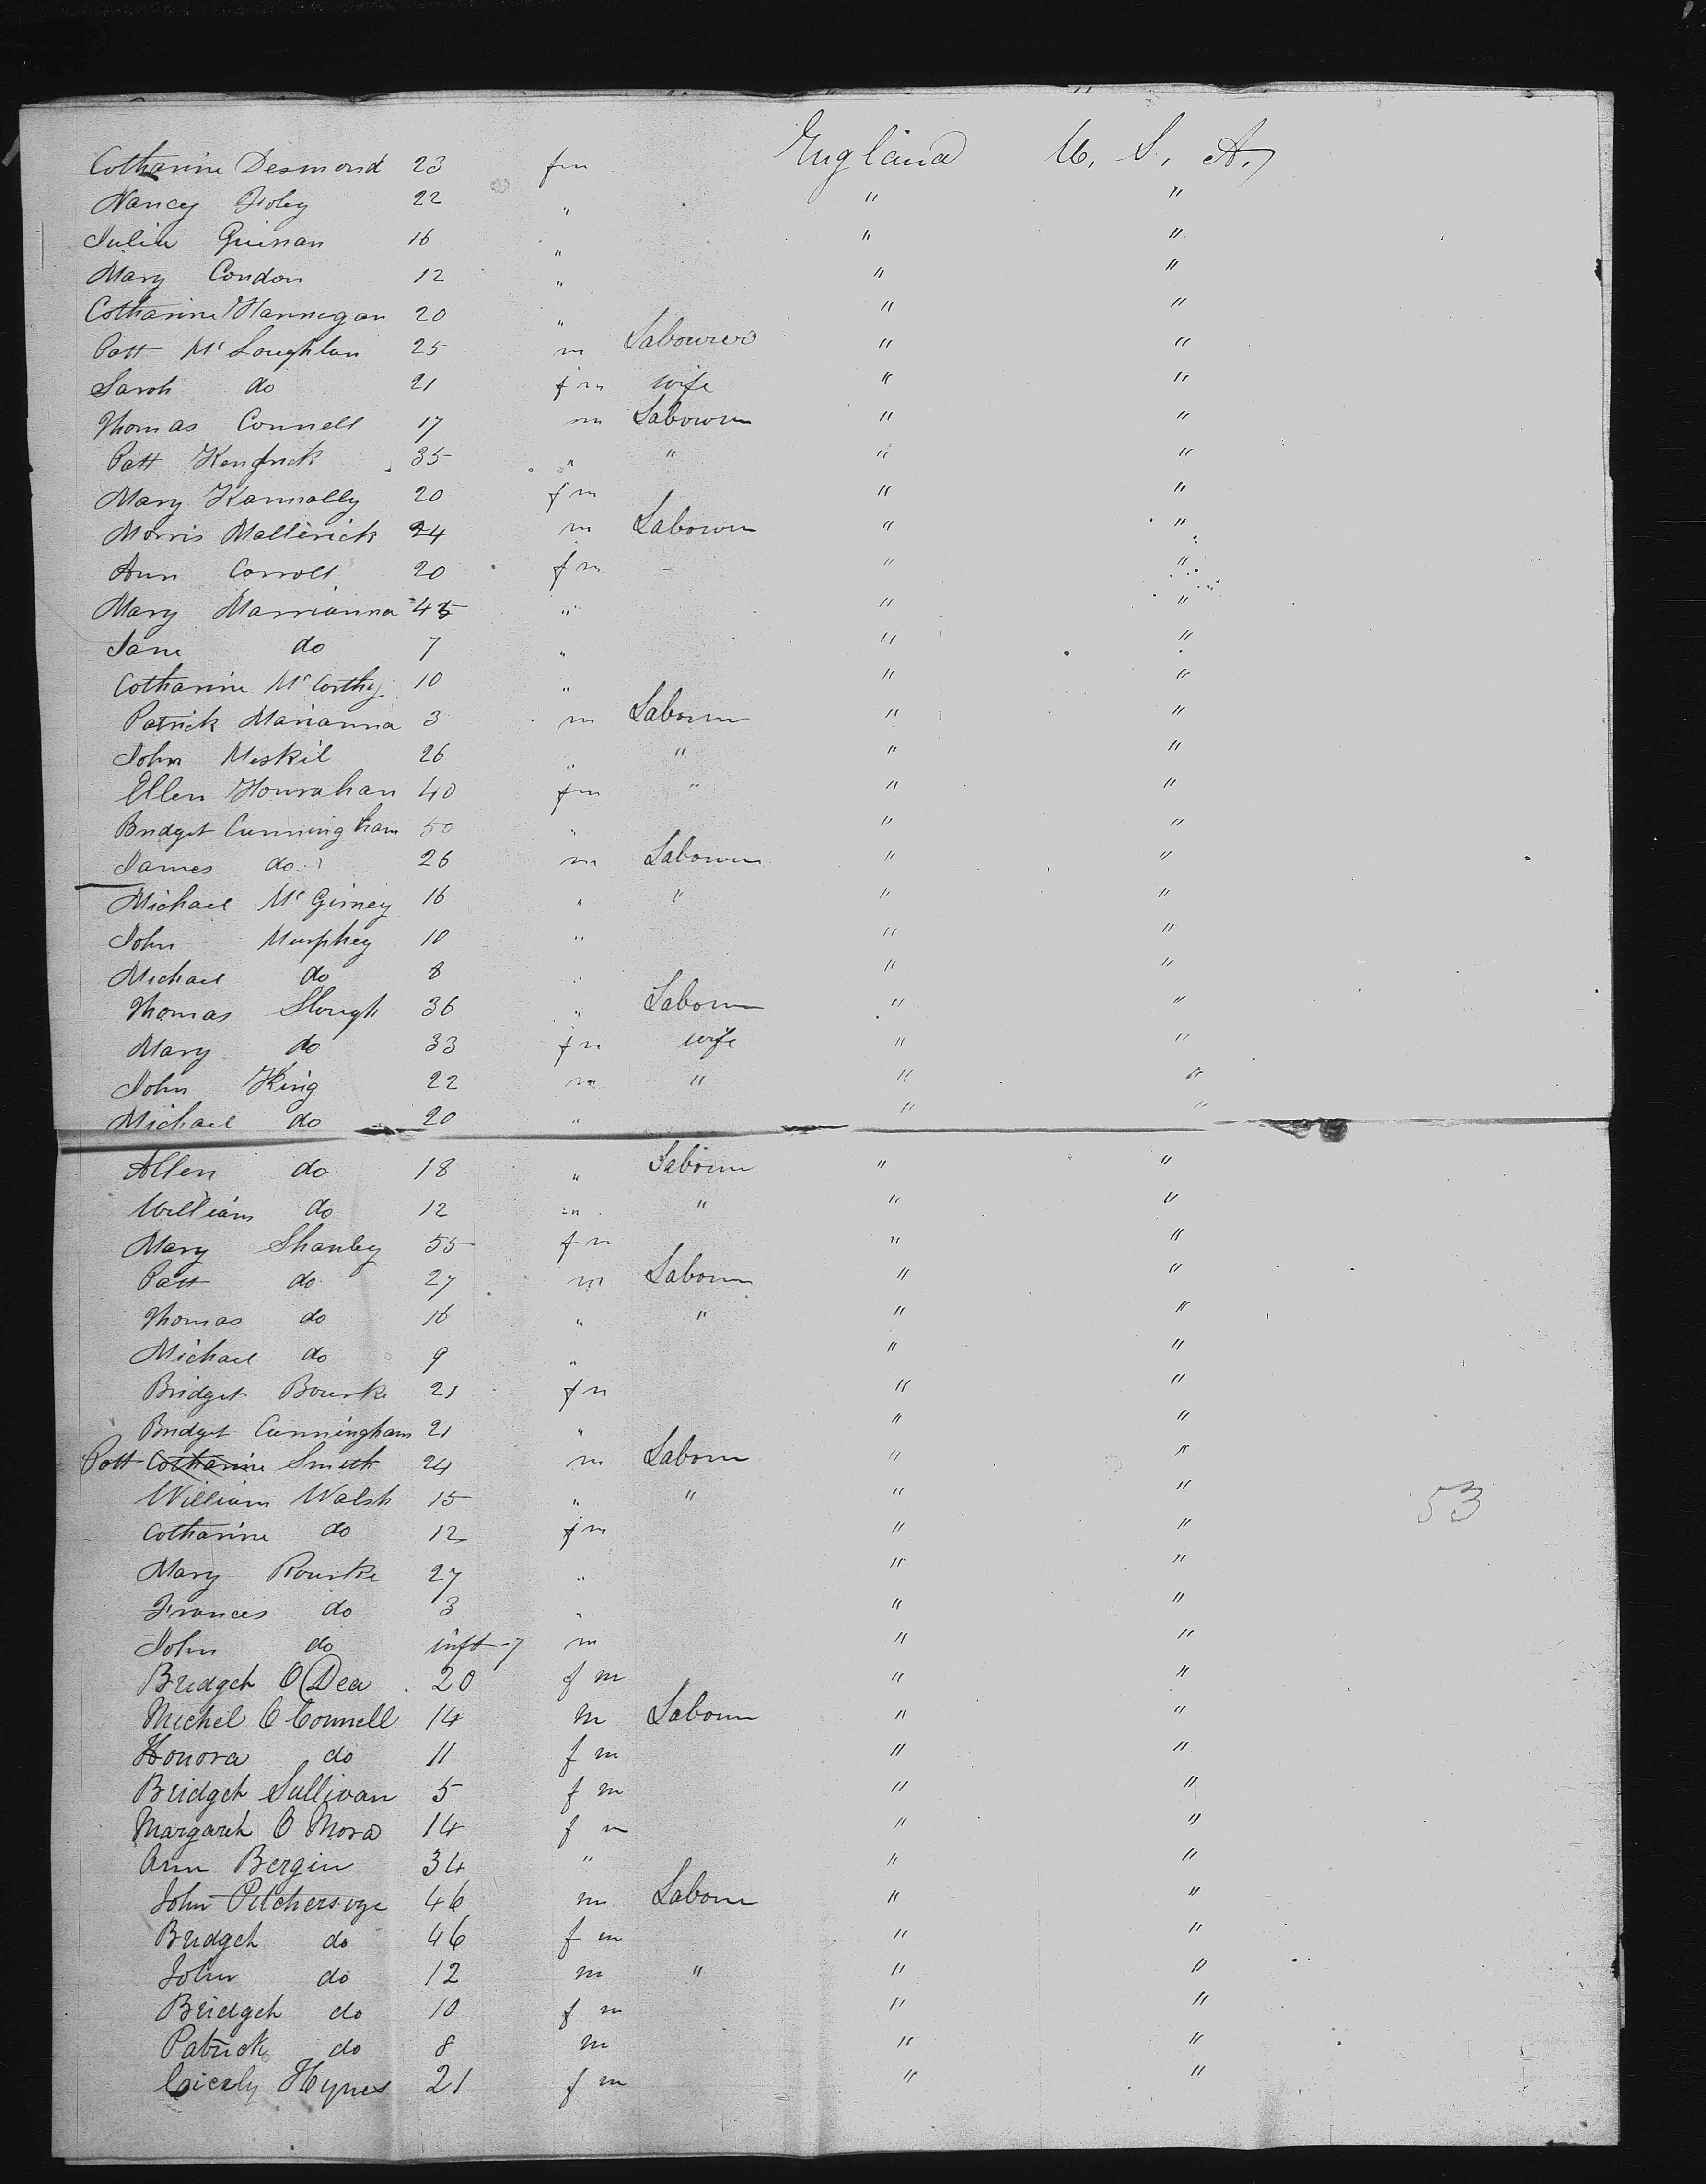 Catharine Desmond 23 fm England U. S. A.
Nancy Foley 22 " " "
Julia Guinan 16 " " "
Mary Condon 12 " " "
Catharine Hannegan 20 " " "
Patt McLoughlan 25 m Labourer " "
Sarah do 21 fm wife " "
Thomas Connell 17 m Labourer " "
Patt Kendrick 35 " " " "
Mary Kannally 20 fm " "
Morris Mallerick 24 m Labourer " "
Ann Carroll 20 fm " "
Mary Marrianna 45 " " "
Jane do 7 " " "
Catharine McCarthy 10 " " "
Patrick Marianna 3 m Labourer " "
John Meskil 26 " " " "
Ellen Hourahan 40 fm " " "
Bridget Cunningham 50 " " "
James do 26 m Labourer " "
Michael McGirney 16 " " " "
John Murphey 10 " " "
Michael do 8 " " "
Thomas Slough 36 " Labourer " "
Mary do 33 fm wife " "
John King 22 m " " "
Michael do 20 " " "
Allen do 18 " Labourer " "
William do 12 m " " "
Mary Shanley 55 fm " "
Patt do 27 m Labourer " "
Thomas do 16 " " " "
Michael do 9 " " "
Bridget Bourke 21 fm " "
Bridget Cunningham 21 " " "
Patt Catharine Smith 24 m Labourer " "
William Walsh 15 " " " " 53
Catharine do 12 fm " "
Mary Rourke 27 " " "
Frances do 3 " " "
John do inft -7 m " "
Bridget O Dea 20 fm " "
Michel O Connell 14 m Labourer " "
Honora do 11 fm " "
Bridget Sullivan 5 fm " "
Margaret O Mora 14 fm " "
Ann Bergin 34 " " "
John 46 m Labourer " "
Bridget do 46 fm " "
John do 12 m " " "
Bridget do 10 fm " "
Patrick do 8 m " "
Cicely Hynes 21 fm " "